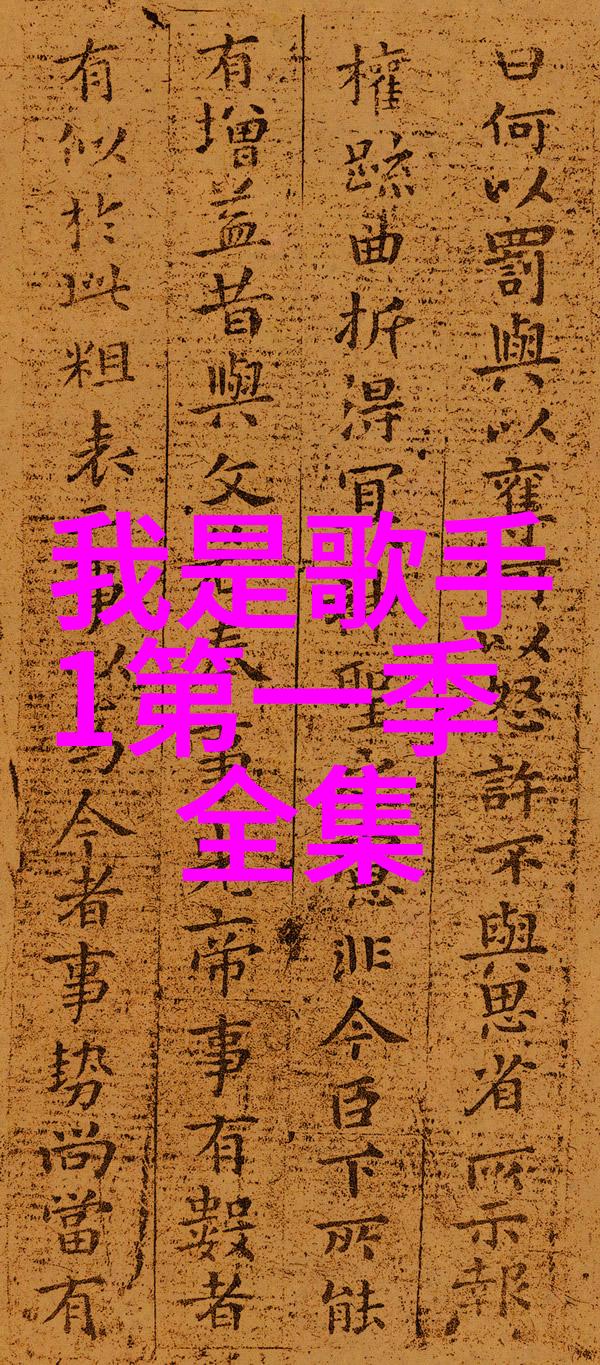 曰何以罰與以以怒許不與思省所示報
權踈曲折得冝聖非今臣下所能
有增益昔與文奉事先帝事有數者
有似於此粗表事以為今者事勢尚當有
我是歌手
1第一季
全集